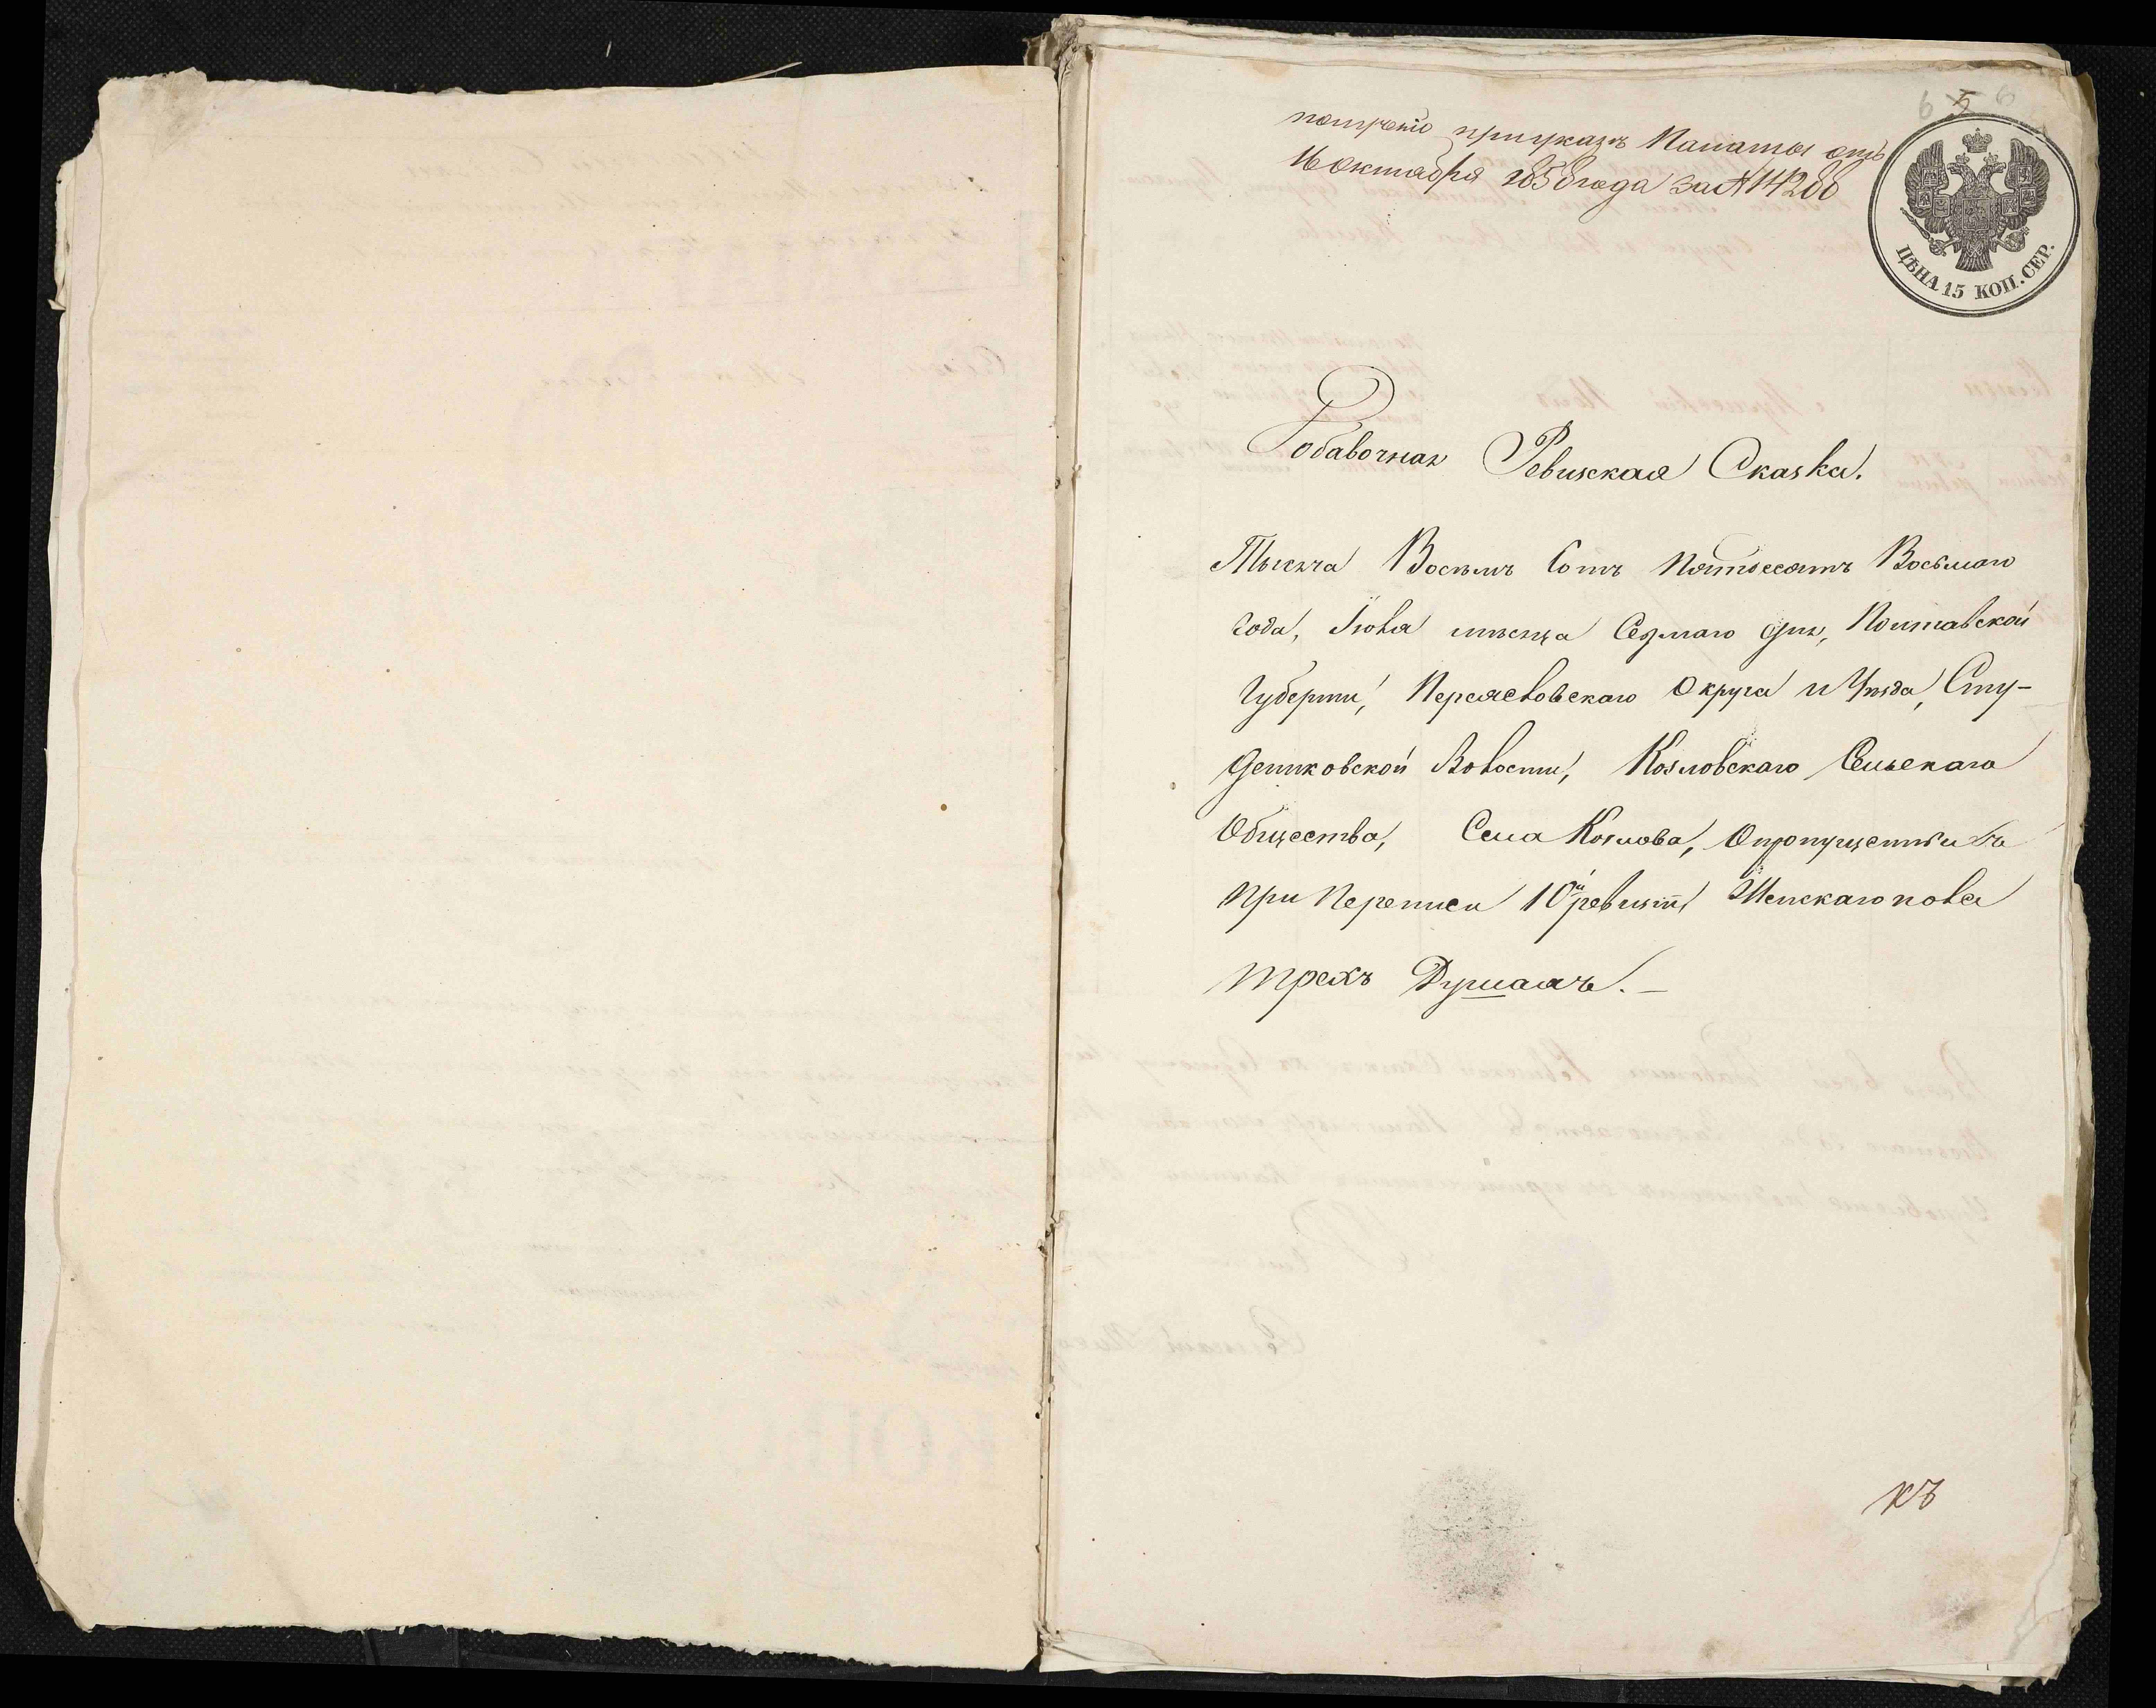 6 5 6
получено при указѣ Палаты отъ
16 октября 1858 года за № 14288
ЦѢНА 15 КОП. СЕР.
Добавочная Ревизская Сказка.
Тысяча Восемь Сотъ Пятьдесятъ Восьмаго
года, Іюля мѣсяца Седмаго дня, Полтавской
Губерніи, Переяславскаго Округа и Уѣзда, Сту-
дениковской Волости, Козловскаго Сельскаго
Общества, Села Козлова, О пропущенныхъ
при переписи 10й ревизіи Женскаго пола
трехъ Душахъ.
къ